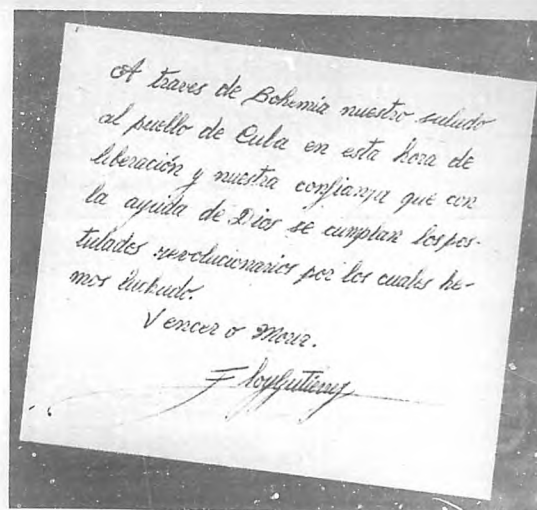 A traves de Bohemia nuestro saludo
al pueblo de Cuba en esta hora de
liberación y nuestra confianza que con
la ayuda de Dios se cumplan los pos-
tulados revolucionarios por los cuales he-
mos luchado.
Vencer o Morir.
E loy Gutierrez